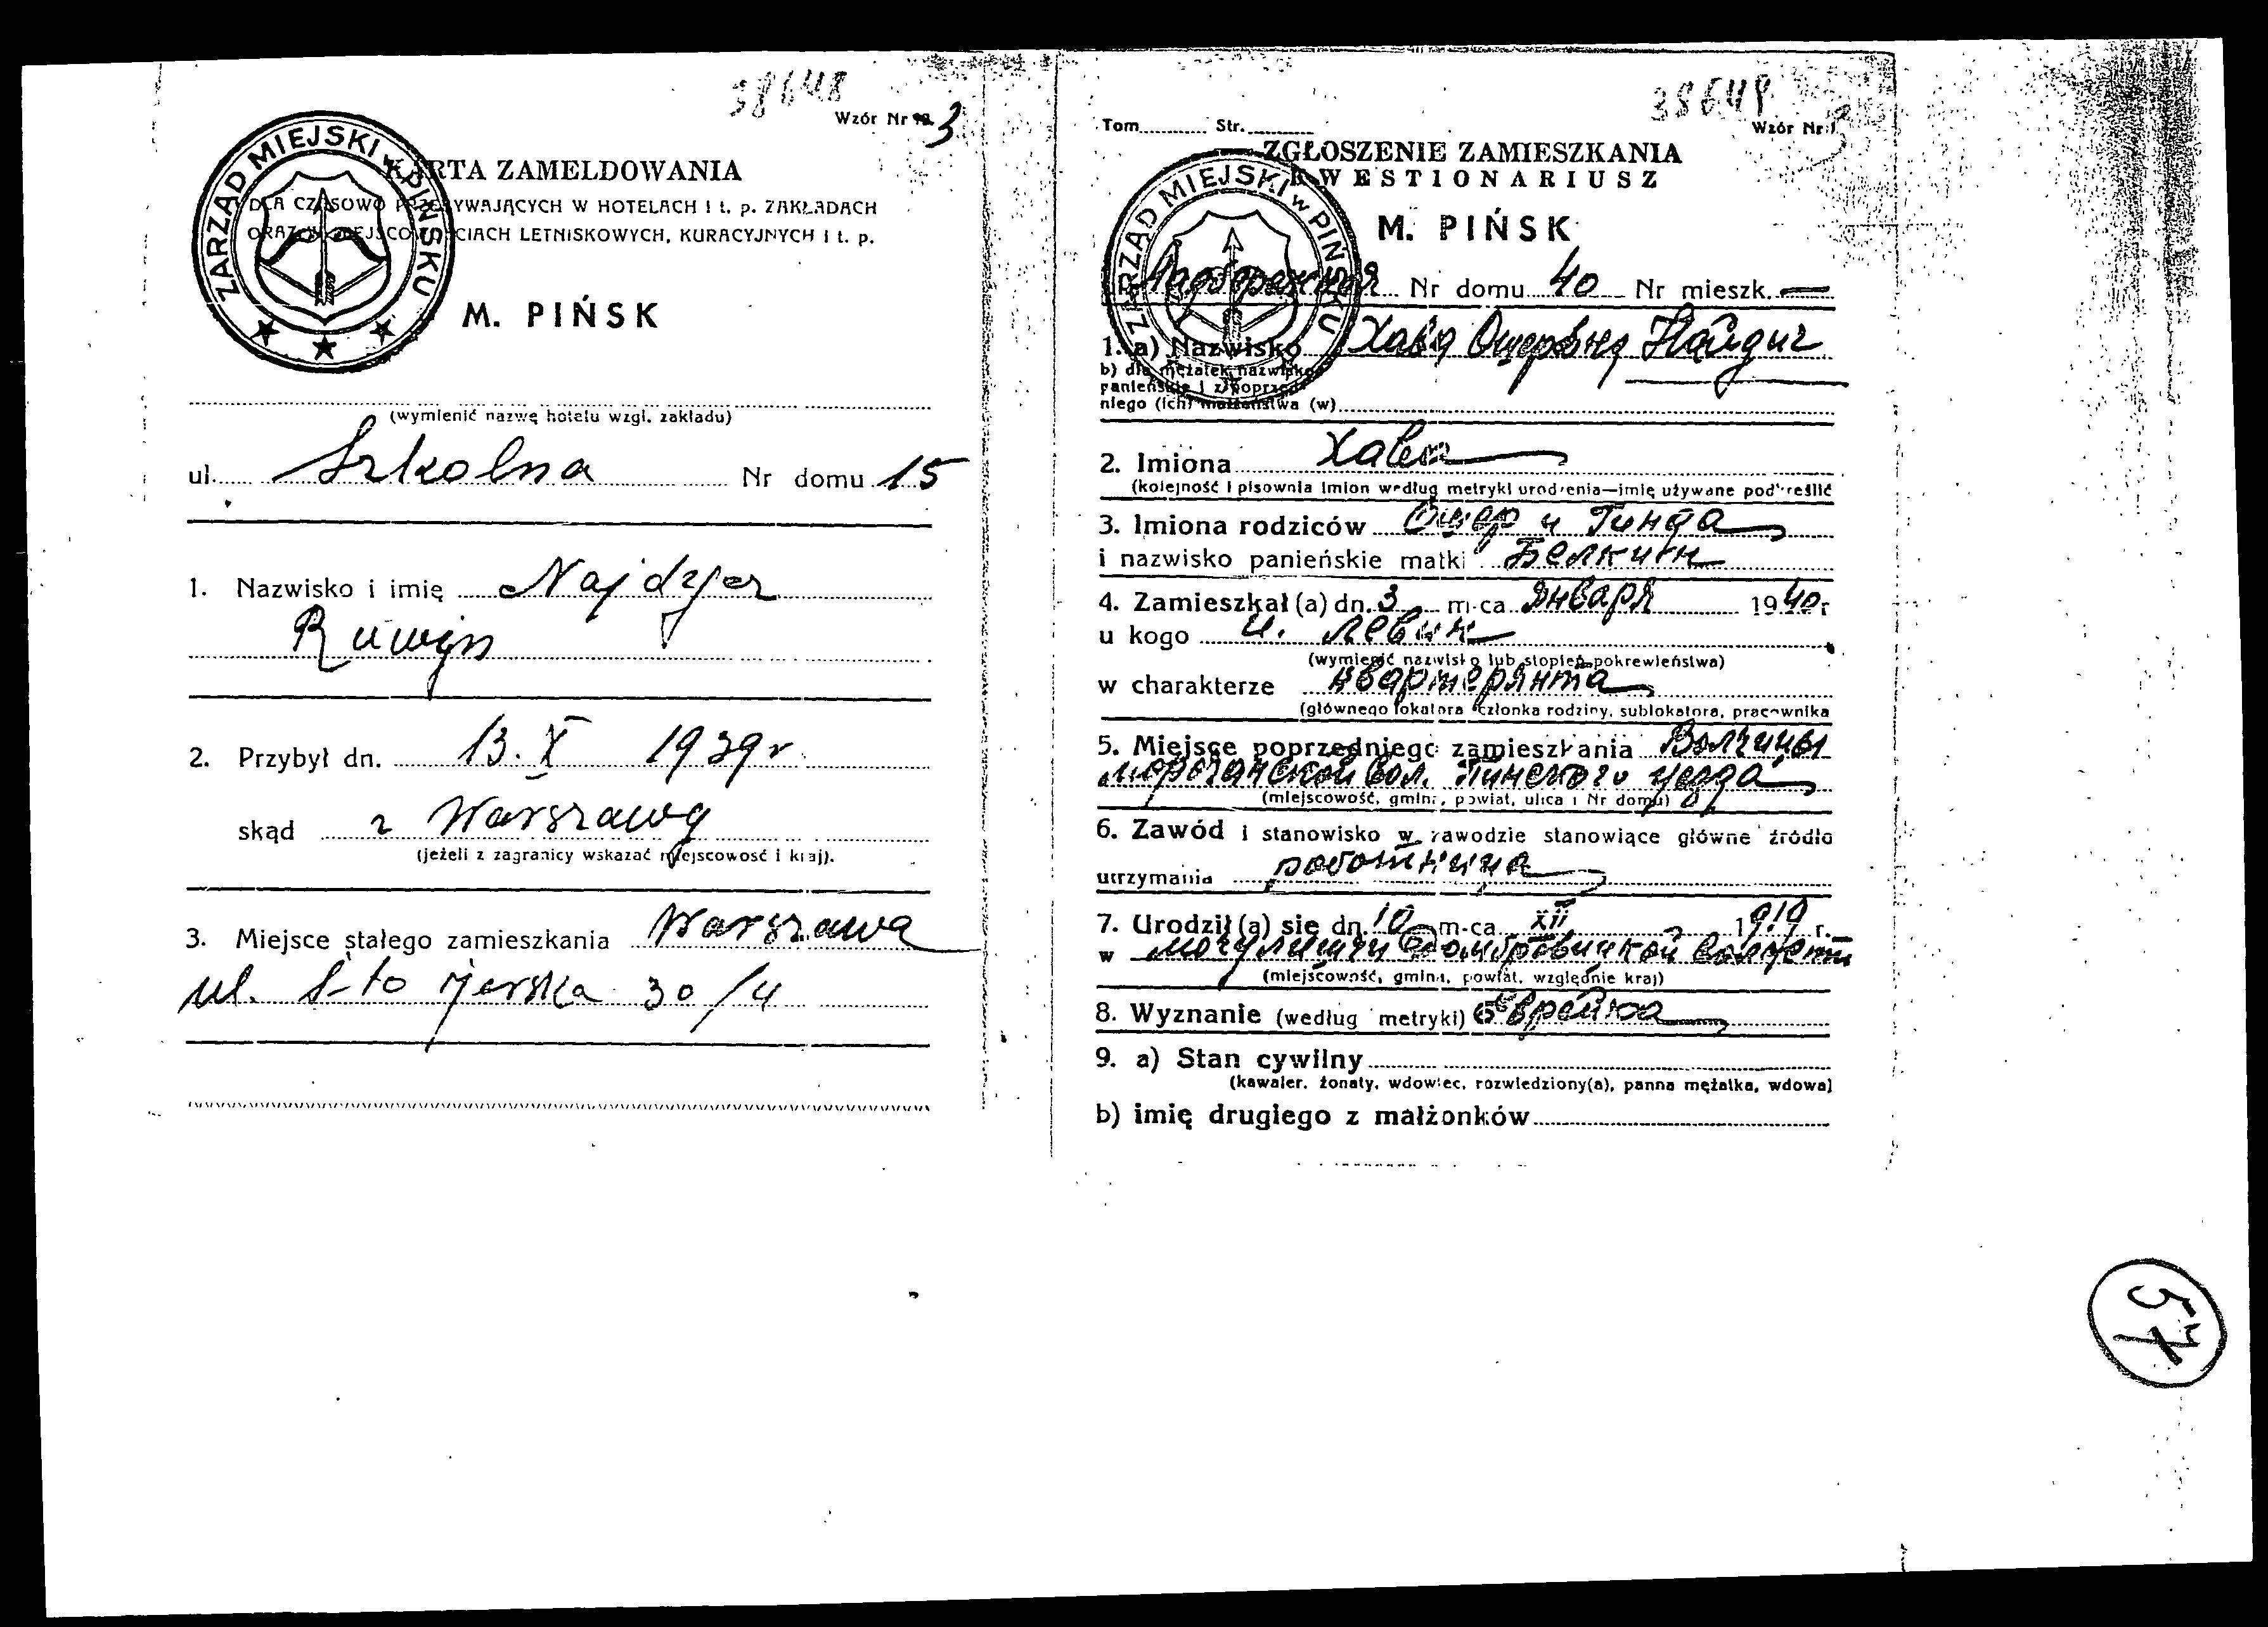 38648
Wzór Nr 3
ZARZĄD MIEJSKI w PIŃSKU
KARTA ZAMELDOWANIA
DLA CZASOWO PRZEBYWAJĄCYCH W HOTELACH I t. p. ZAKŁADACH
ORAZ W MIEJSCOWOŚCIACH LETNISKOWYCH, KURACYJNYCH I t. p.
M. PIŃSK
(wymienić nazwę hotelu wzgl. zakładu)
ul. Szkolna Nr domu 15
1. Nazwisko i imię Najdzjer
Ruwyn
2. Przybył dn. 13. X 1939 r
skąd z Warszawy
(jeżeli z zagranicy wskazać miejscowość i kraj).
3. Miejsce stałego zamieszkania Warszawa
ul. S-to jerska 30/4
38649
Tom Str. Wzór Nr 1
ZGŁOSZENIE ZAMIESZKANIA
KWESTIONARIUSZ
ZARZĄD MIEJSKI w PIŃSKU
M. PIŃSK
Nr domu 40 Nr mieszk. —
1. a) Nazwisko Хава Ошеровна Найдич
b) dla mężatek nazwisko
panieńskie i z poprzed-
niego (ich) małżeństwa (w)
2. Imiona Хава
(kolejność i pisownia imion według metryki urodzenia—imię używane podkreślić
3. Imiona rodziców Ошер и Гинда
i nazwisko panieńskie matki Белкин
4. Zamieszkał (a) dn. 3 m-ca января 1940 r
u kogo И. Левин
(wymienić nazwisko lub stopień pokrewieństwa)
w charakterze квартерянта
(głównego lokatora członka rodziny, sublokatora, pracownika
5. Miejsce poprzedniego zamieszkania Волчицы
морочанской вол. Пинского уезда
(miejscowość, gmina, powiat, ulica i Nr domu)
6. Zawód i stanowisko w zawodzie stanowiące główne źródło
utrzymania работница
7. Urodził (a) się dn. 10 m-ca XII 1919 r.
w домбровицкой волости
(miejscowość, gmina, powiat, względnie kraj)
8. Wyznanie (według metryki) еврейка
9. a) Stan cywilny
(kawaler, żonaty, wdowiec, rozwiedziony(a), panna mężatka, wdowa)
b) imię drugiego z małżonków
57